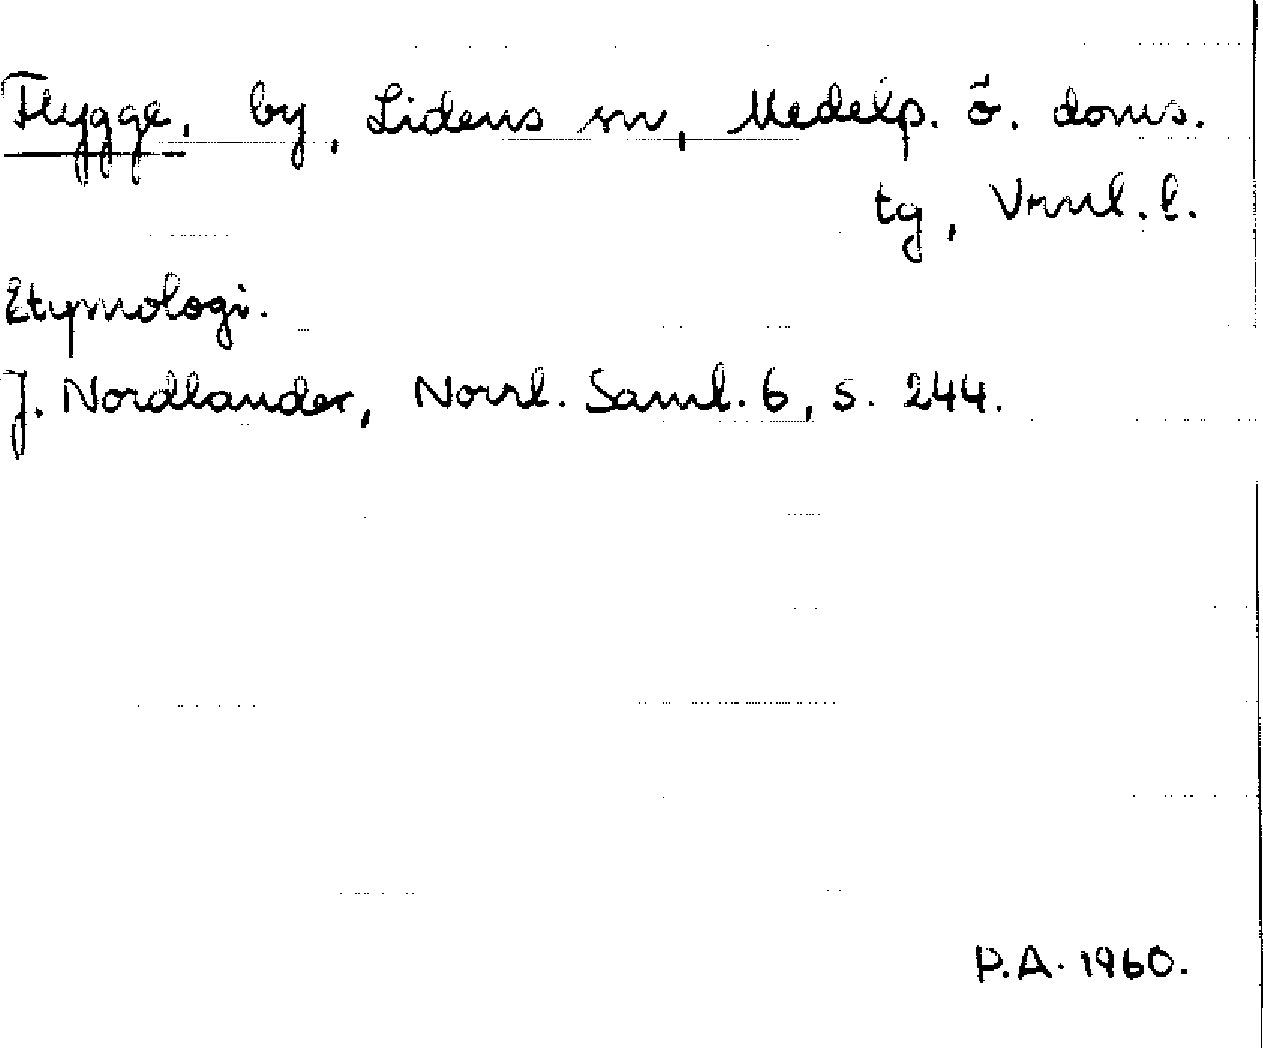 Flygge, by, Lidens sn, Medelp. ö. doms.
tg, Vrnl. l.
Etymologi.
J. Nordlander, Norrl. Saml. 6, s. 244.
P.A. 1960.